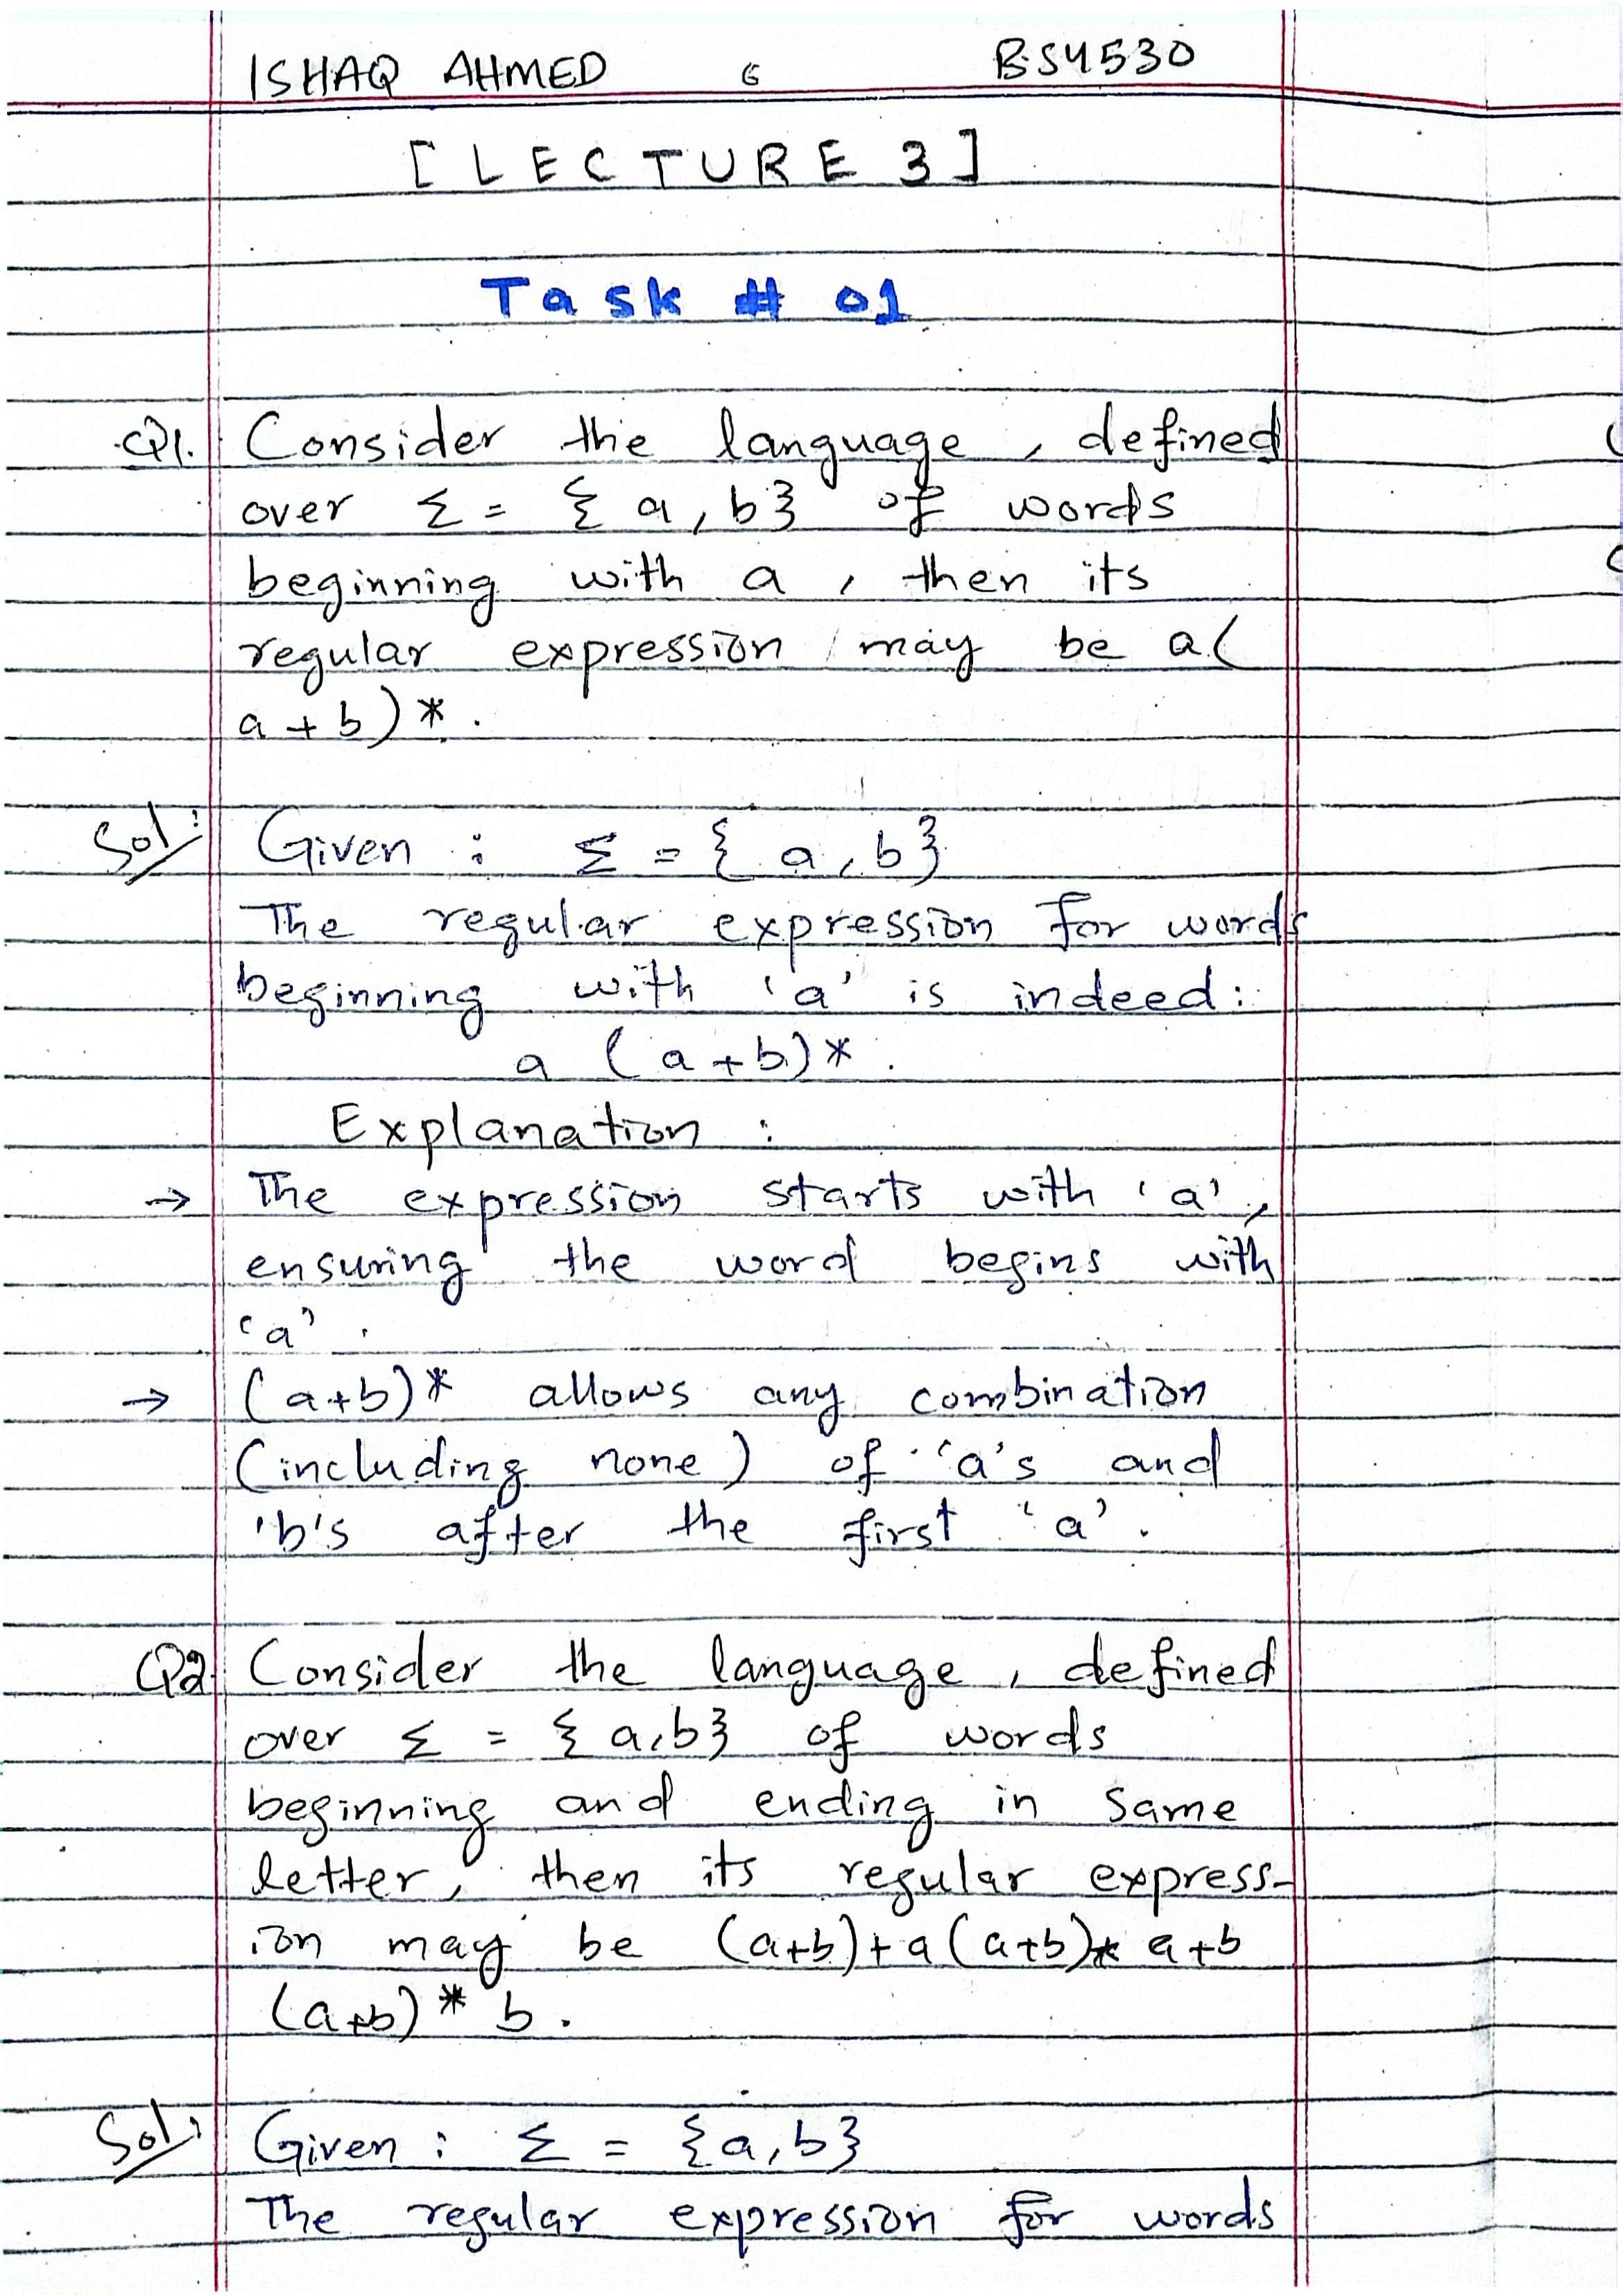 ISHAQ AHMED 6 BS4530
[ LECTURE 3 ]
Task # 01
Q1. Consider the language, defined
over Σ = { a, b} of words
beginning with a, then its
regular expression may be a(
a + b)*.
Sol: Given : Σ = { a, b}
The regular expression for words
beginning with 'a' is indeed:
a (a+b)*.
Explanation :
→ The expression starts with 'a',
ensuring the word begins with
'a'.
→ (a+b)* allows any combination
(including none) of 'a's and
'b's after the first 'a'.
Q2. Consider the language, defined
over Σ = { a,b} of words
beginning and ending in same
letter, then its regular express-
ion may be (a+b)+a(a+b)* a+b
(a+b)* b.
Sol: Given : Σ = {a,b}
The regular expression for words